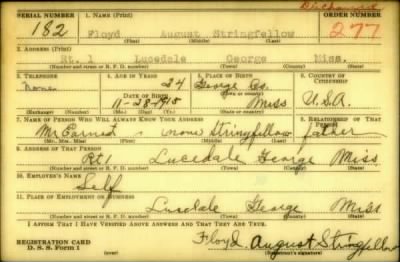 Discharged
SERIAL NUMBER 1. NAME (Print) ORDER NUMBER
182 Floyd August Stringfellow 277
(First) (Middle) (Last)
2. ADDRESS (Print)
Rt. 1 Lucedale George Miss.
(Number and street or R. F. D. number) (Town) (County) (State)
3. TELEPHONE 4. AGE IN YEARS 5. PLACE OF BIRTH 6. COUNTRY OF CITIZENSHIP
None 24 George Co.
DATE OF BIRTH
11-28-1915 Miss U.S.A.
(Exchange) (Number) (Mo.) (Day) (Yr.) (State or country)
7. NAME OF PERSON WHO WILL ALWAYS KNOW YOUR ADDRESS 8. RELATIONSHIP OF THAT PERSON
Mr Earnest none Stringfellow father
(Mr., Mrs., Miss) (First) (Middle) (Last)
9. ADDRESS OF THAT PERSON
Rt 1 Lucedale George Miss
(Number and street or R. F. D. number) (Town) (County) (State)
10. EMPLOYER'S NAME
Self
11. PLACE OF EMPLOYMENT OR BUSINESS
Lucedale George Miss
(Number and street or R. F. D. number) (Town) (County) (State)
I AFFIRM THAT I HAVE VERIFIED ABOVE ANSWERS AND THAT THEY ARE TRUE.
REGISTRATION CARD
D. S. S. Form 1 (over) Floyd August Stringfellow
(Registrant's signature)